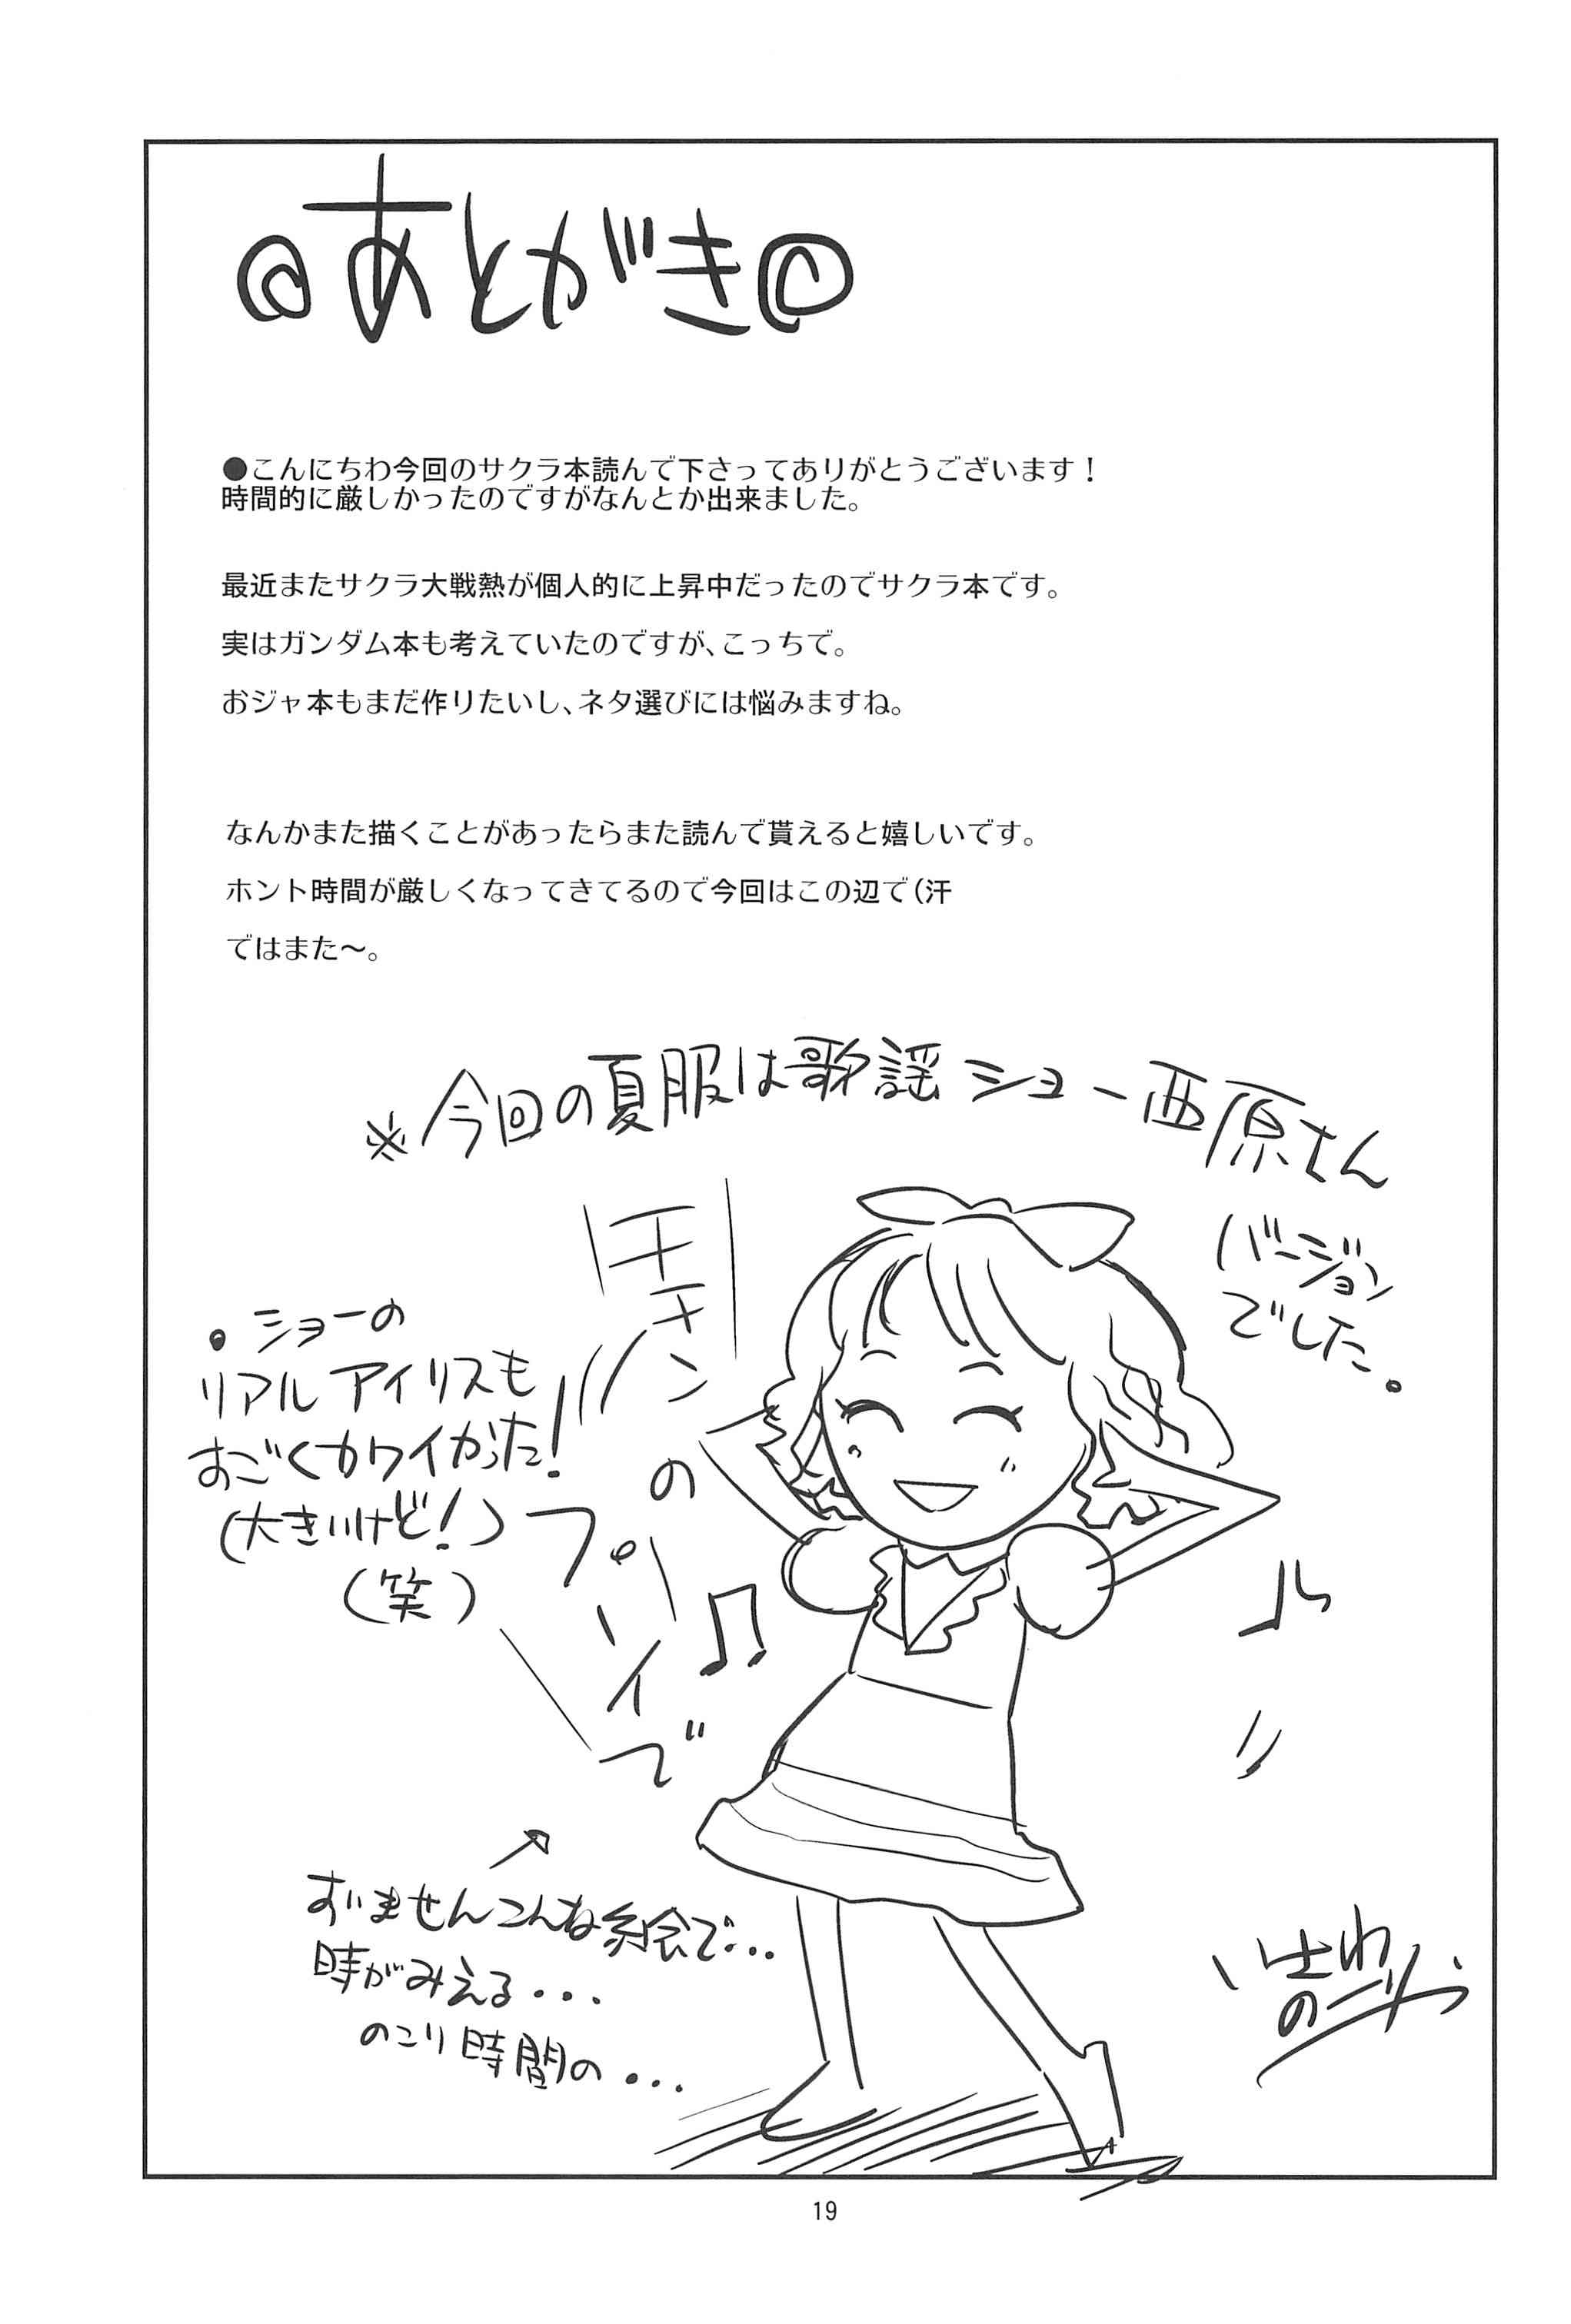 あとがき
●こんにちわ今回のサクラ本読んで下さってありがとうございます！
時間的に厳しかったのですがなんとか出来ました。
最近またサクラ大戦熱が個人的に上昇中だったのでサクラ本です。
実はガンダム本も考えていたのですが、こっちで。
おジャ本もまだ作りたいし、ネタ選びには悩みますね。
なんかまた描くことがあったらまた読んで貰えると嬉しいです。
ホント時間が厳しくなってきてるので今回はこの辺で（汗
ではまた～。
※今回の夏服は歌謡ショー西原さん
バージョン
でした。
・ショーの
リアルアイリスも
すごくカワイかった！
（大きいけど！）
（笑）
チキン
の
プリイで
すいませんこんな絵で…
時がみえる・・・
のこり時間の・・・
19